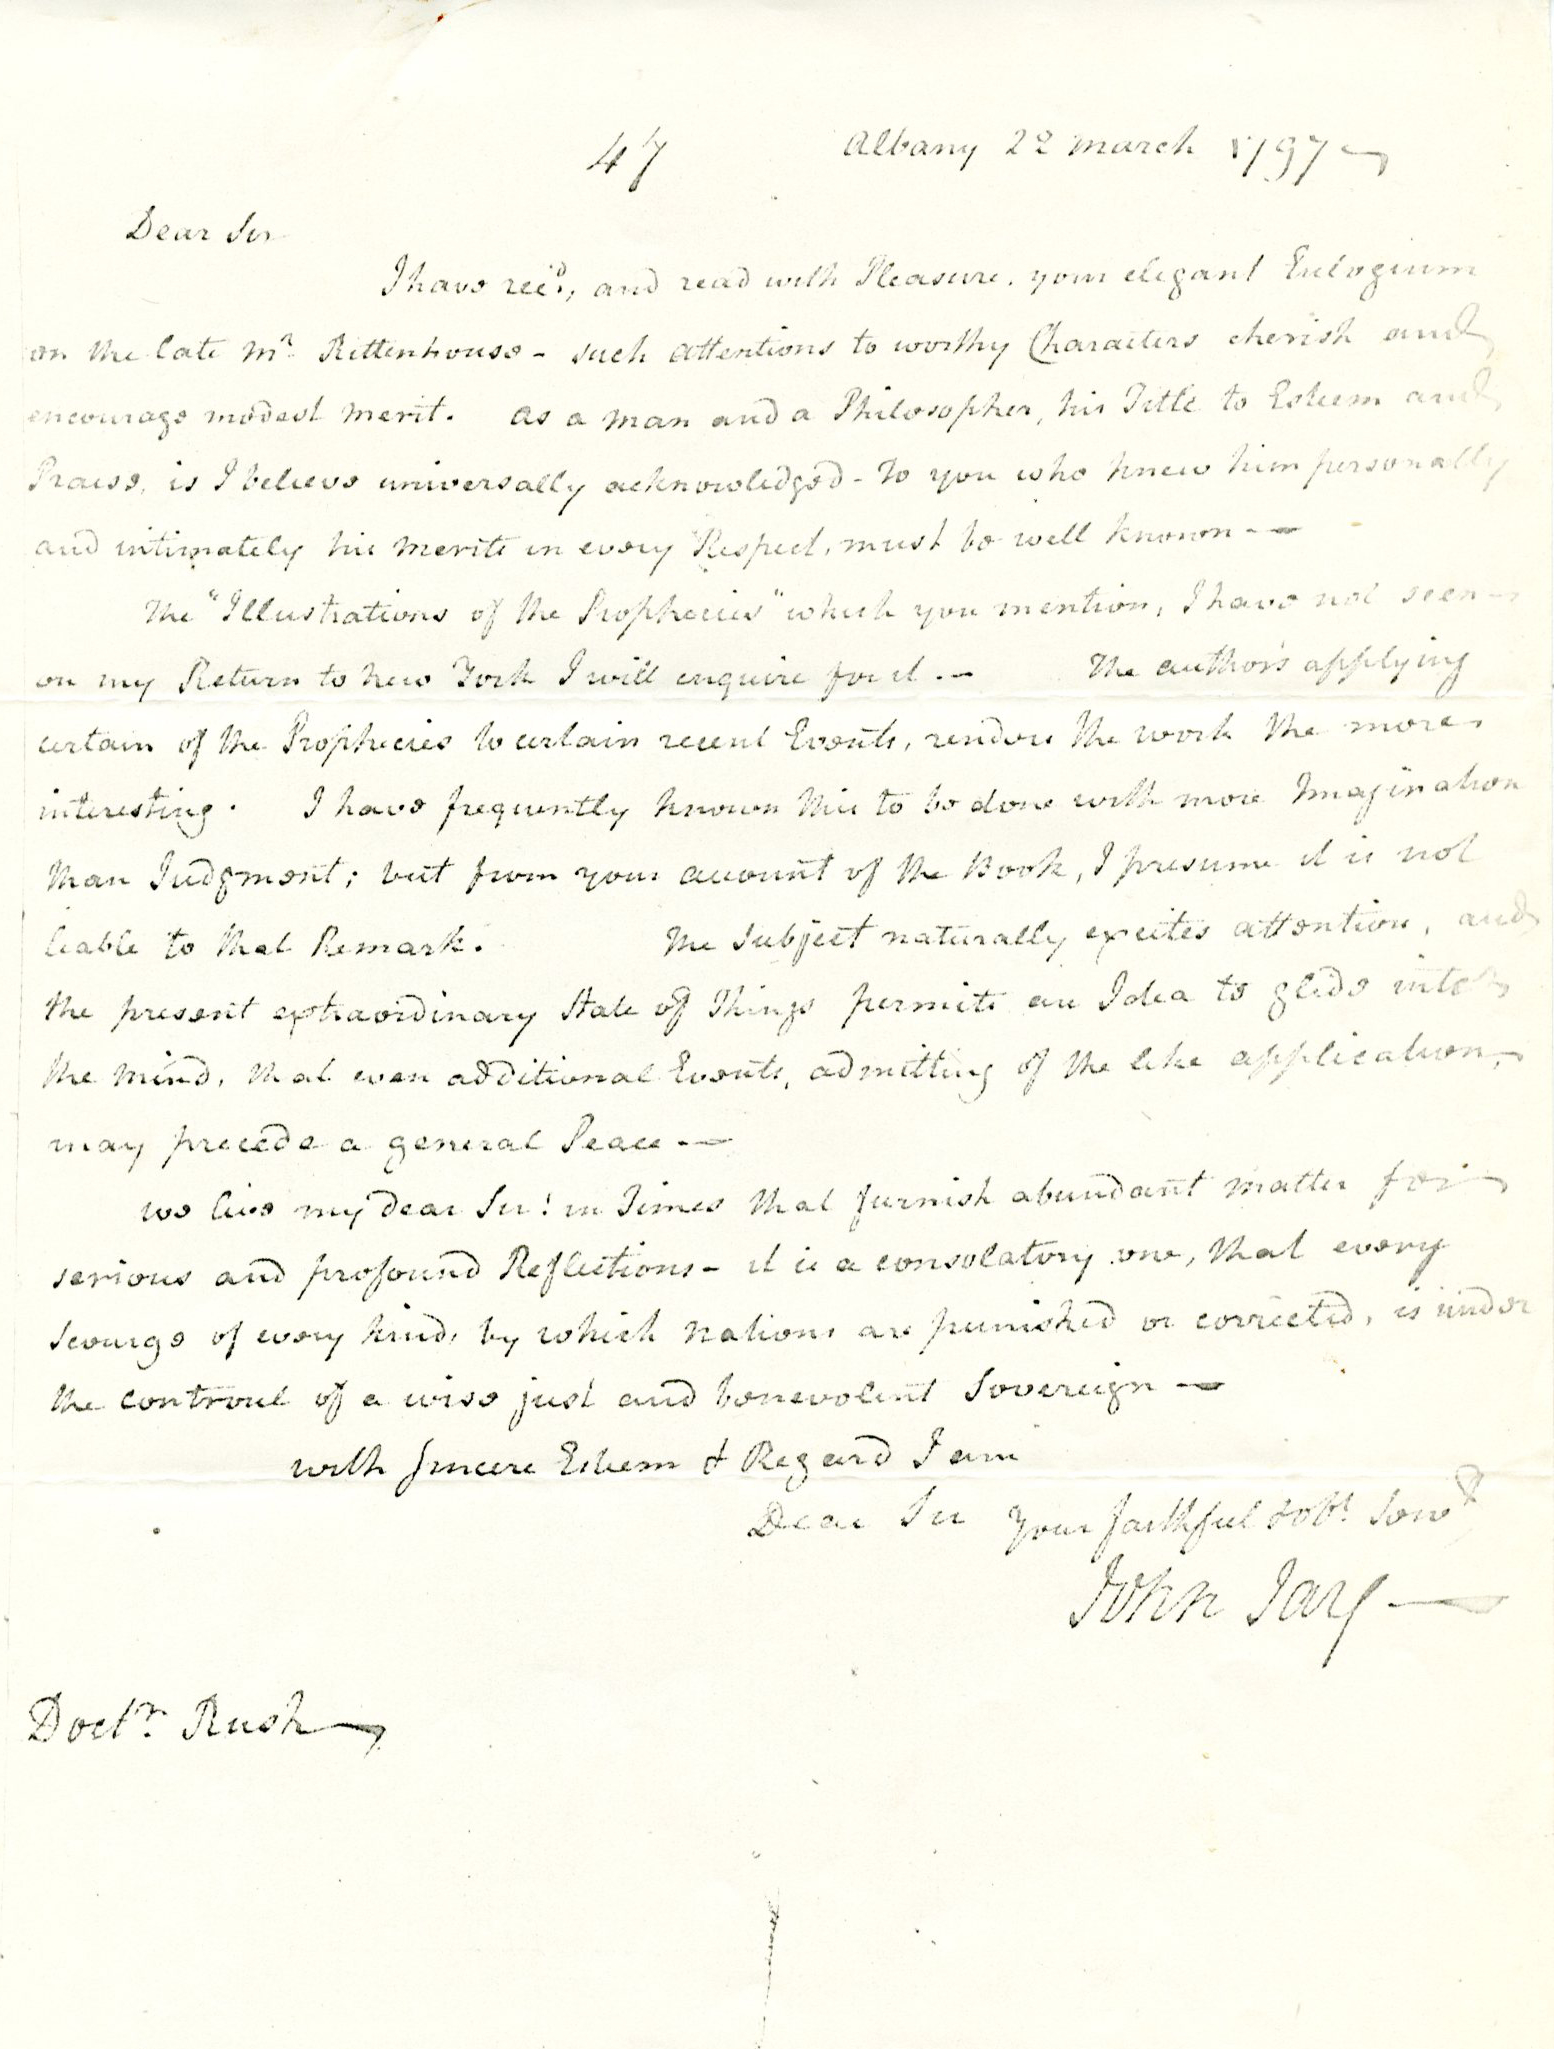 47 Albany 22 March 1797
Dear Sir
I have rec.d, and read with Pleasure, your elegant Eulogium
on the late Mr. Rittenhouse - such attentions to worthy Characters cherish and
encourage modest merit. as a man and a Philosopher, his Title to Esteem and
Praise, is I believe universally acknowledged - To you who knew him personally
and intimately his merits in every Respect, must be well known --
The "Illustrations of the Prophecies" which you mention, I have not seen -
on my Return to New York I will enquire for it. - The author's applying
certain of the Prophecies to certain recent Events, renders the work the more
interesting. I have frequently known this to be done with more Imagination
than Judgment; but from your account of the Book, I presume it is not
liable to that Remark. The Subject naturally excites attention, and
the present extraordinary State of Things permits an Idea to glide into
the mind, that even additional Events, admitting of the like application,
may precede a general Peace --
we live my dear Sir! in Times that furnish abundant matter for
serious and profound Reflections - it is a consolatory one, that every
scourge of every kind, by which nations are punished or corrected, is under
the controul of a wise just and benevolent Sovereign -
with sincere Esteem & Regard I am
Dear Sir Your faithful & obt. Servt
John Jay
Doctr. Rush